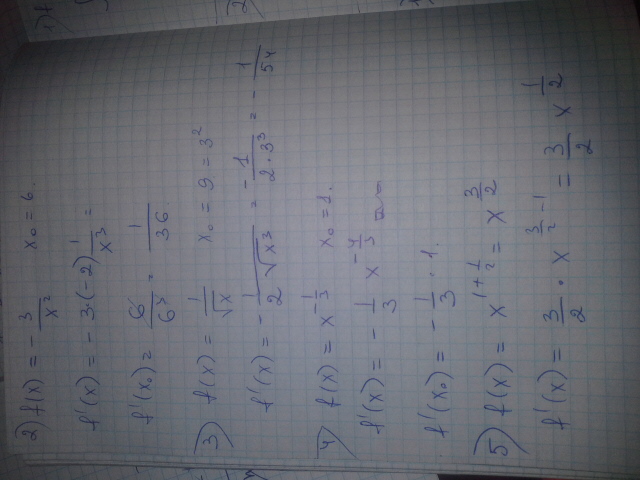 2) f(x) = - 3/x² x₀ = 6.
f'(x) = - 3·(-2) 1/x³ =
f'(x₀) = 6/6³ = 1/36
3) f(x) = 1/√x x₀ = 9 = 3²
f'(x) = - 1/2√x³ = - 1/2·3³ = - 1/54
4) f(x) = x^(-1/3) x₀ = 1.
f'(x) = - 1/3 x^(-4/3)
f'(x₀) = - 1/3 · 1.
5) f(x) = x^(1+1/2) = x^(3/2)
f'(x) = 3/2 · x^(3/2 - 1) = 3/2 x^(1/2)